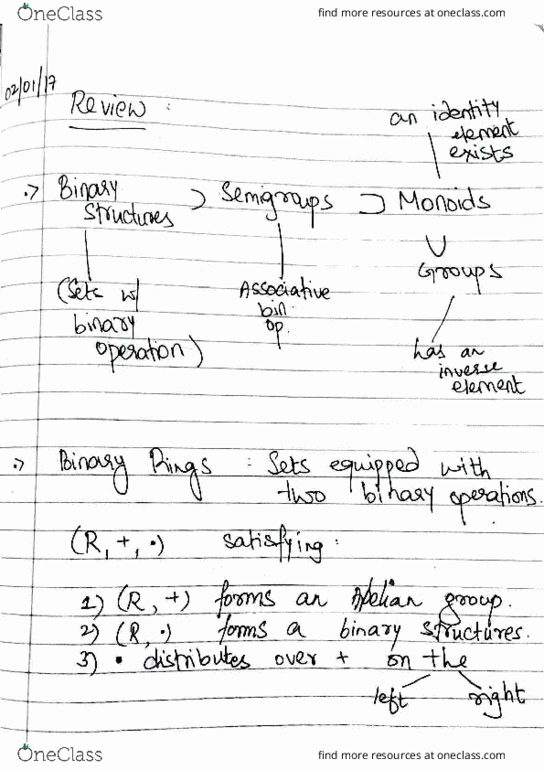 OneClass
find more resources at oneclass.com
02/01/17
Review :
an identity
element
exists
Binary
Structures
⊃ Semigroups ⊃ Monoids
∪
Groups
(Sets w/
binary
operation)
Associative
bin.
op.
has an
inverse
element
Binary Rings : Sets equipped with
two binary operations.
(R, +, •) satisfying :
1) (R, +) forms an Abelian group.
2) (R, •) forms a binary structures.
3) • distributes over + on the
left right
OneClass
find more resources at oneclass.com